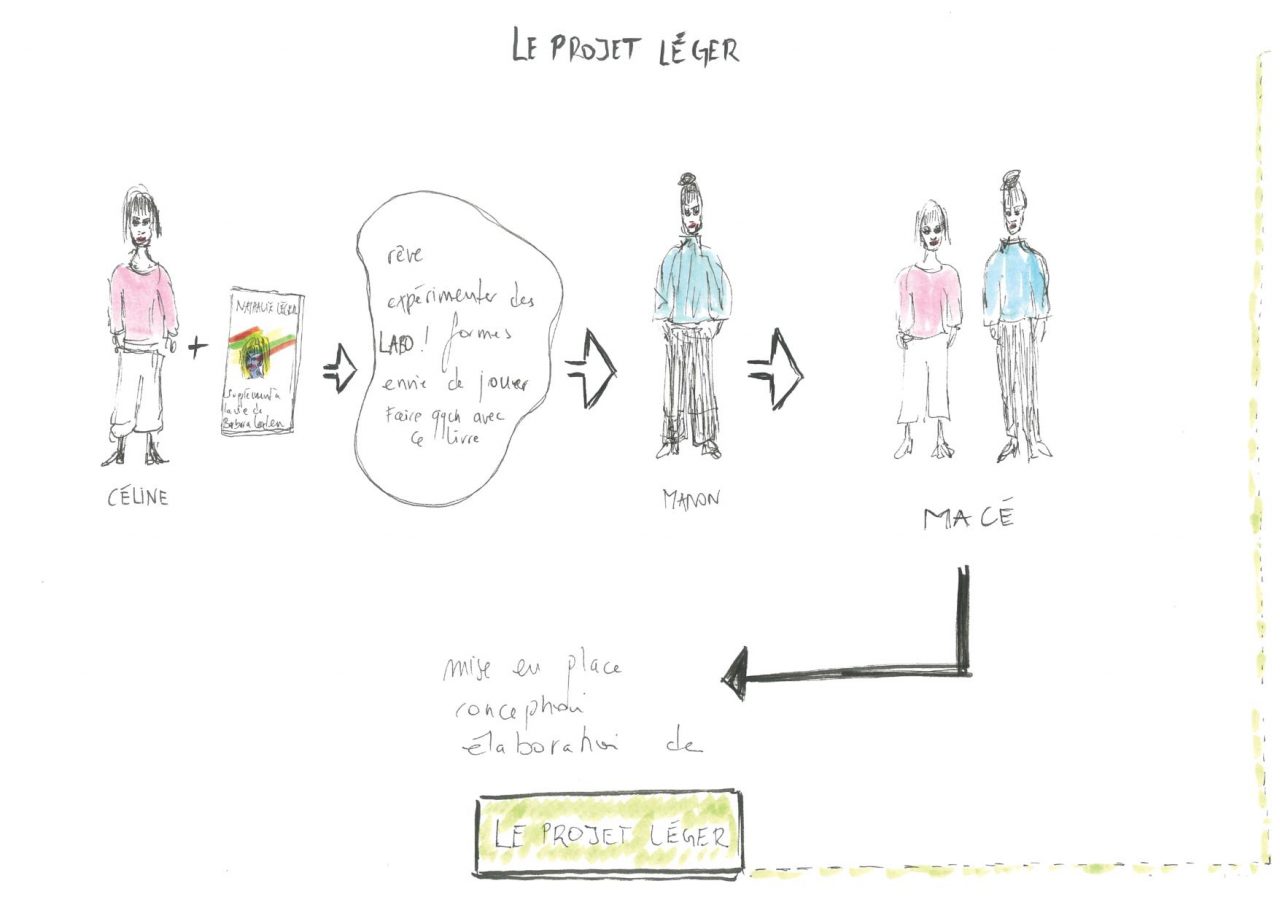 LE PROJET LÉGER
NATHALIE LÉGER
Supplément à
la vie de
Barbara Loden
CÉLINE
rêve
expérimenter des
LABO! formes
envie de jouer
Faire qqch avec
ce livre
MANON
MACÉ
mise en place
conception
élaboration de
LE PROJET LÉGER